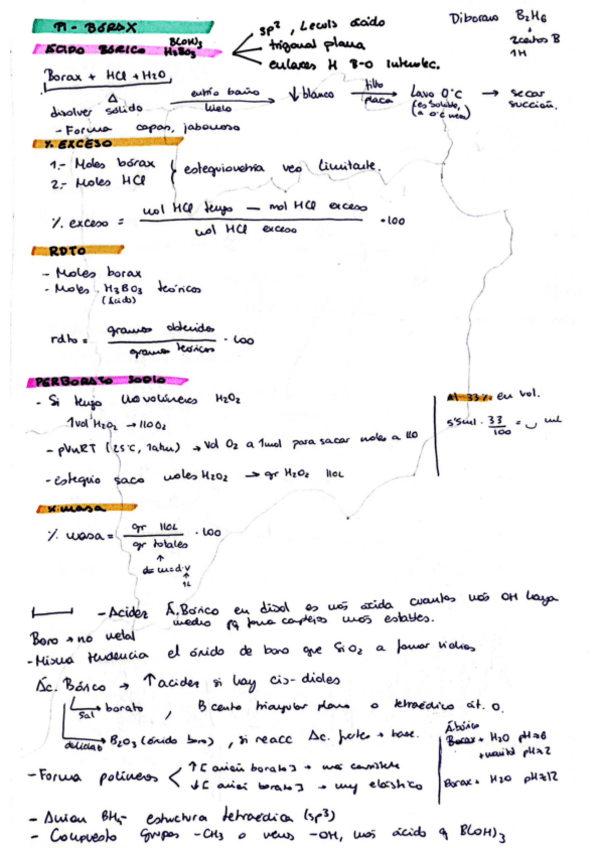 P1 - BÓRAX
Diborano B2H6
ÁCIDO BÓRICO B(OH)3 H3BO3
sp², Lewis ácido
trigonal plana
enlaces H B-O intermolec.
2 centros B
1H
Borax + HCl + H2O
disolver sólido Δ
enfrío baño hielo
↓ blanco
filtro placa
Lavo 0°C (es soluble, a 0°C menos)
→ secar succión.
- Forma capas, jabonoso
% EXCESO
1.- Moles bórax
2.- Moles HCl
estequiometría veo limitante.
% exceso = mol HCl tengo — mol HCl exceso / mol HCl exceso · 100
RDTO
- Moles borax
- Moles H3BO3 teóricos
(ácido)
rdto = gramos obtenidos / gramos teóricos · 100
PERBORATO SODIO
- Si tengo 110 volúmenes H2O2
1 vol H2O2 → 110 O2
- pV=nRT (25°C, 1atm) → Vol O2 a 1mol para sacar moles a 110
- estequio saco moles H2O2 → gr H2O2 110L
Al 33% en vol.
5'5ml · 33/100 = ml
% masa
% masa = gr 110L / gr totales · 100
↑
d= m=d·v
↑
1L
- Acidez Á. Bórico en disol es más ácida cuantos más OH haya
medio pq forma complejos más estables.
Boro → no metal
- Misma tendencia el óxido de boro que SiO2 a formar vidrios
Ác. Bórico → ↑ acidez si hay cis-dioles
sal → borato, B cento triangular plano o tetraédico át. O.
B2O3 (óxido boro), si reacc Ác. fuertes + base.
Á bórico
Borax + H2O pH≈6
+ manitol pH≈2
Borax + H2O pH≈12
- Forma polímeros < ↑[anión borato] → más consistente
↓[anión borato] → muy elástico
- Anión BH4- estructura tetraédica (sp³)
- Compuesto grupos -CH3 o menos -OH, más ácido q B(OH)3